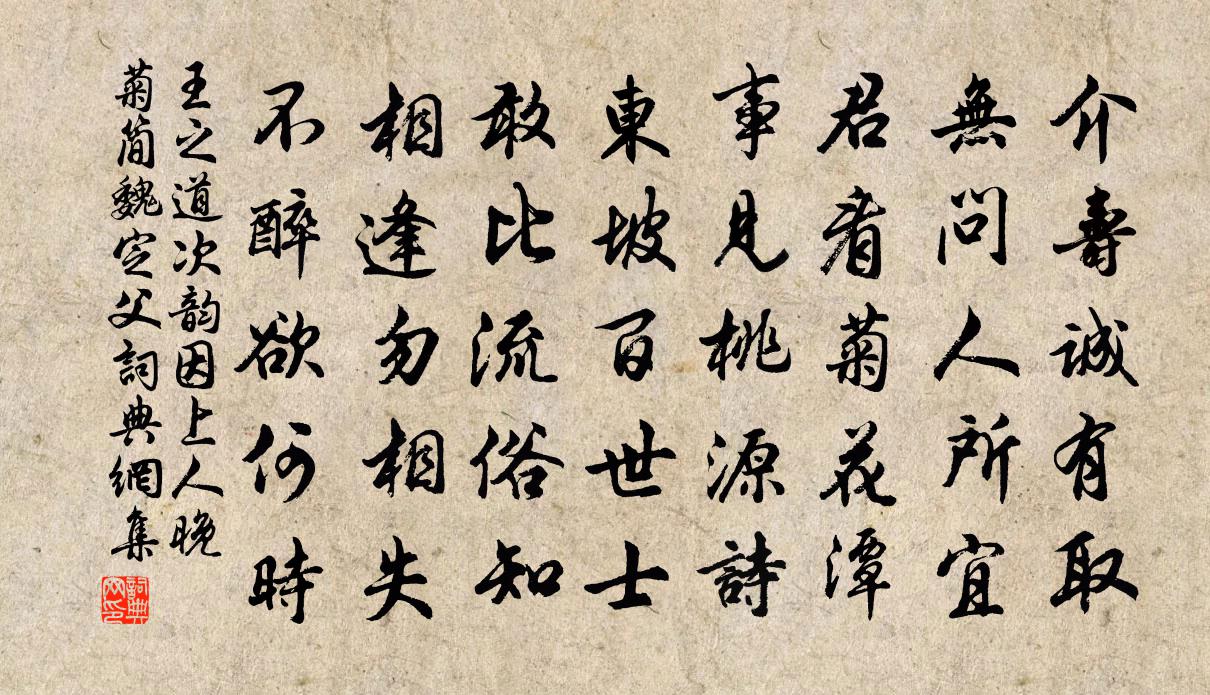 介壽誠有取
無問人所宜
君看菊花潭
事見桃源詩
東坡百世士
敢比流俗知
相逢勿相失
不醉欲何時
王之道次韵因上人晚
菊简魏定父詞典網集
詞典網印